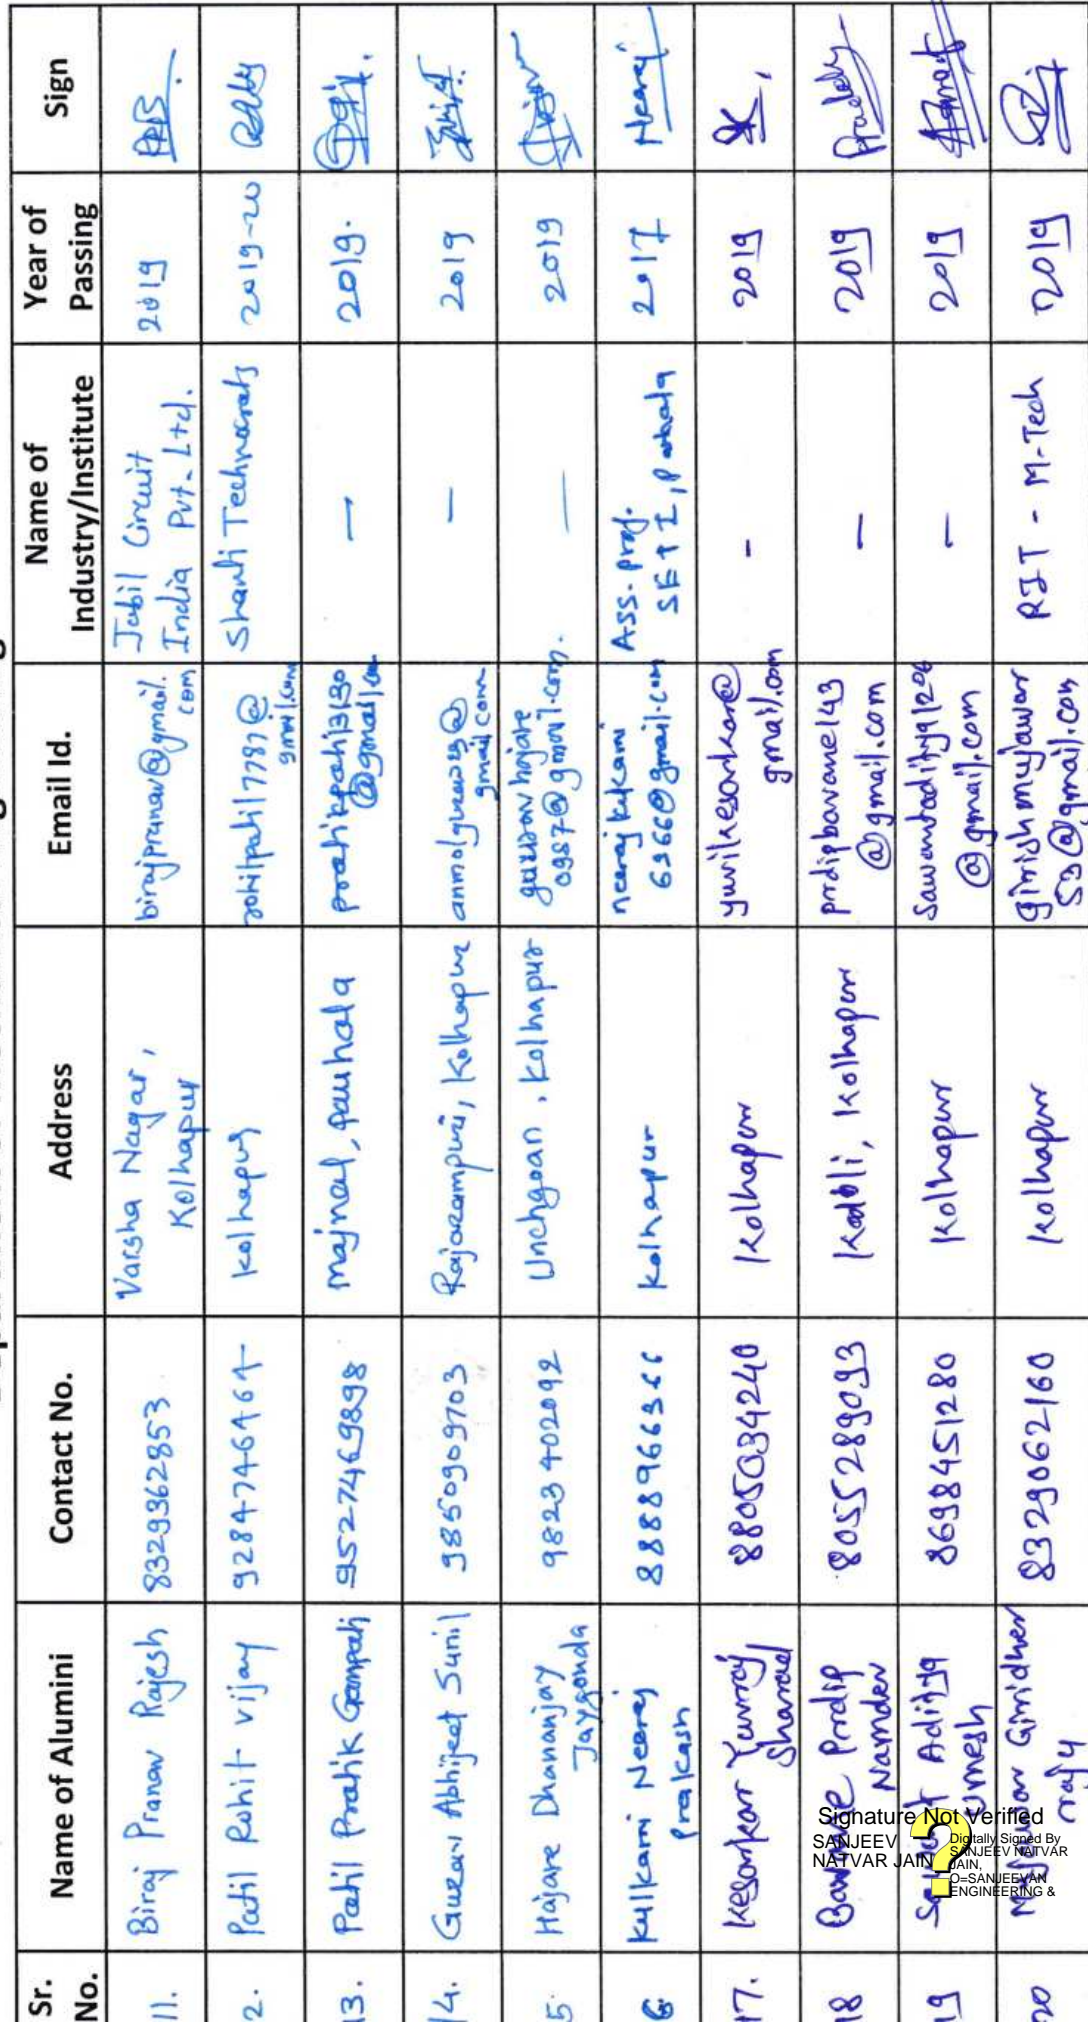 Sr. No. Name of Alumini Contact No. Address Email Id. Name of Industry/Institute Year of Passing Sign
11. Biraj Pranav Rajesh 8329362853 Varsha Nagar, Kolhapur birajpranav@gmail.com Jabil Circuit India Pvt. Ltd. 2019
2. Patil Rohit vijay 9284746464 kolhapur rohitpatil7787@gmail.com Shanti Technocrats 2019-20
13. Patil Pratik Ganpati 9527469898 majnal, panhala pratikpatil3130@gmail.com — 2019.
14. Gurav Abhijeet Sunil 9850909703 Rajarampuri, Kolhapur anmolgurav29@gmail.com — 2019
5. Hajare Dhananjay Jaygonda 9823402092 Unchgoan, Kolhapur guravhajare0987@gmail.com. — 2019
6. Kulkarni Neeraj Prakash 8888966366 Kolhapur neerajkulkarni6366@gmail.com Ass. prof. SETI, Panhala 2017 Neeraj
17. Kesarkar Yuvraj Sharad 8805034240 Kolhapur yuvikesarkar@gmail.com - 2019
18 Bawane Prdip Namdev 8055289093 Kadoli, Kolhapur prdipbavane143@gmail.com — 2019
19 Sawant Aditya Umesh 8698451280 Kolhapur Sawantaditya1296@gmail.com — 2019
20 Mujawar Giridher raju 8329062160 Kolhapur girishmujawar53@gmail.com RIT - M-Tech 2019
Signature Not Verified
SANJEEV
NATVAR JAIN
Digitally Signed By
SANJEEV NATVAR
JAIN,
O=SANJEEVAN
ENGINEERING &